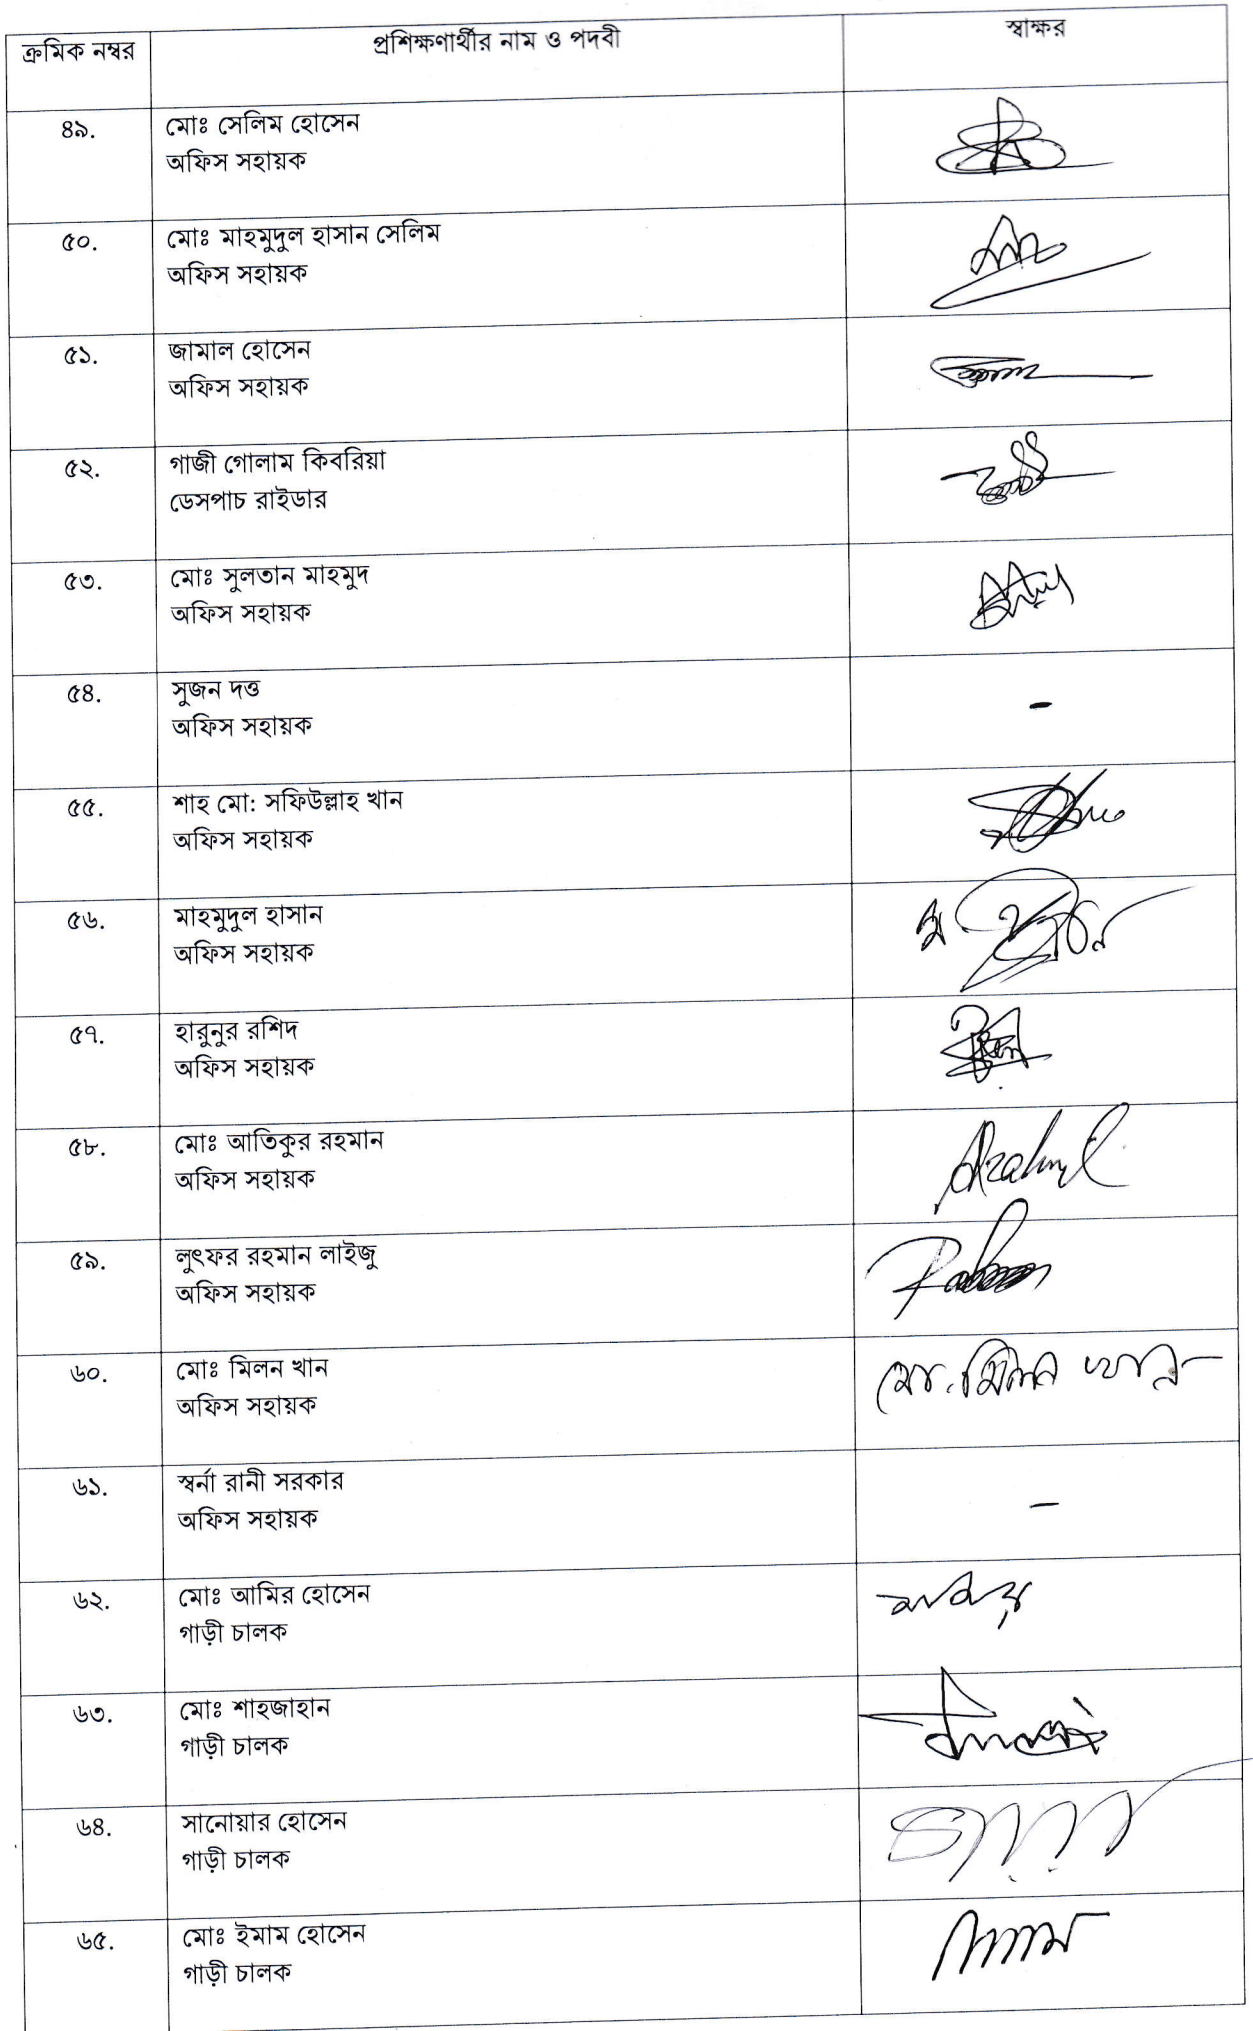 ক্রমিক নম্বর প্রশিক্ষণার্থীর নাম ও পদবী স্বাক্ষর
৪৯. মোঃ সেলিম হোসেন
অফিস সহায়ক
৫০. মোঃ মাহমুদুল হাসান সেলিম
অফিস সহায়ক
৫১. জামাল হোসেন
অফিস সহায়ক
৫২. গাজী গোলাম কিবরিয়া
ডেসপাচ রাইডার
৫৩. মোঃ সুলতান মাহমুদ
অফিস সহায়ক
৫৪. সুজন দত্ত
অফিস সহায়ক
-
৫৫. শাহ মো: সফিউল্লাহ খান
অফিস সহায়ক
৫৬. মাহমুদুল হাসান
অফিস সহায়ক
৫৭. হারুনুর রশিদ
অফিস সহায়ক
৫৮. মোঃ আতিকুর রহমান
অফিস সহায়ক
৫৯. লুৎফর রহমান লাইজু
অফিস সহায়ক
৬০. মোঃ মিলন খান মো. মিলন খান
অফিস সহায়ক
৬১. স্বর্না রানী সরকার
অফিস সহায়ক
-
৬২. মোঃ আমির হোসেন
গাড়ী চালক
৬৩. মোঃ শাহজাহান
গাড়ী চালক
৬৪. সানোয়ার হোসেন
গাড়ী চালক
৬৫. মোঃ ইমাম হোসেন
গাড়ী চালক